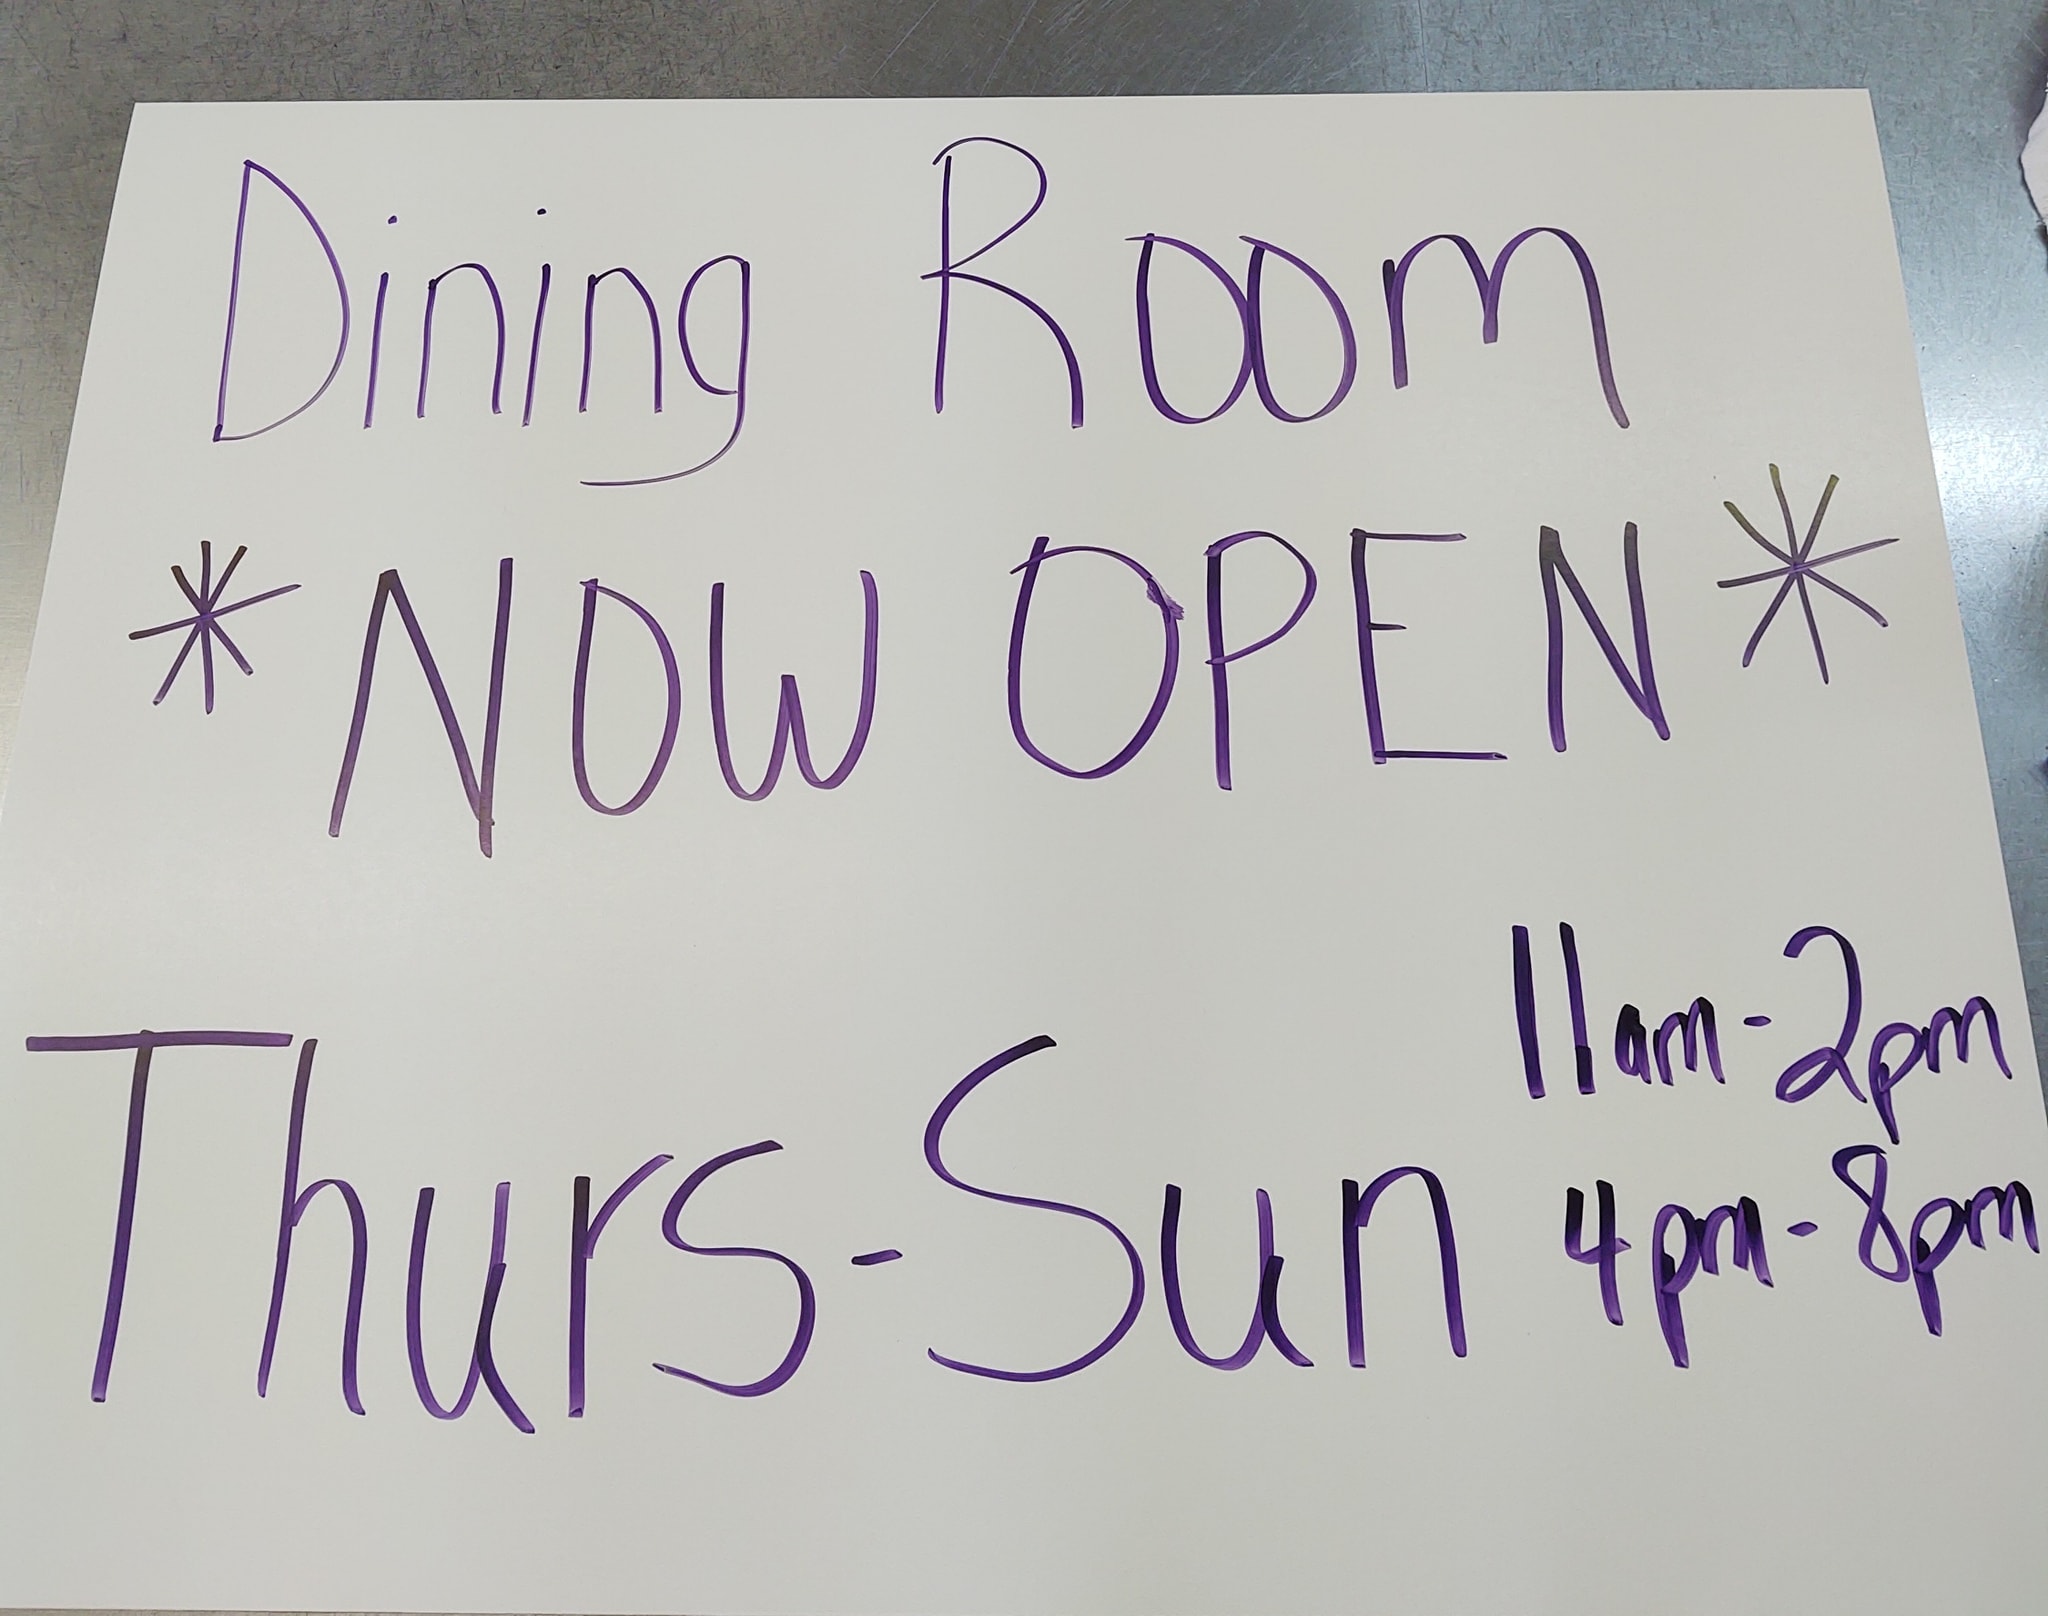 Dining Room
*NOW OPEN*
Thurs-Sun
11am-2pm
4pm-8pm